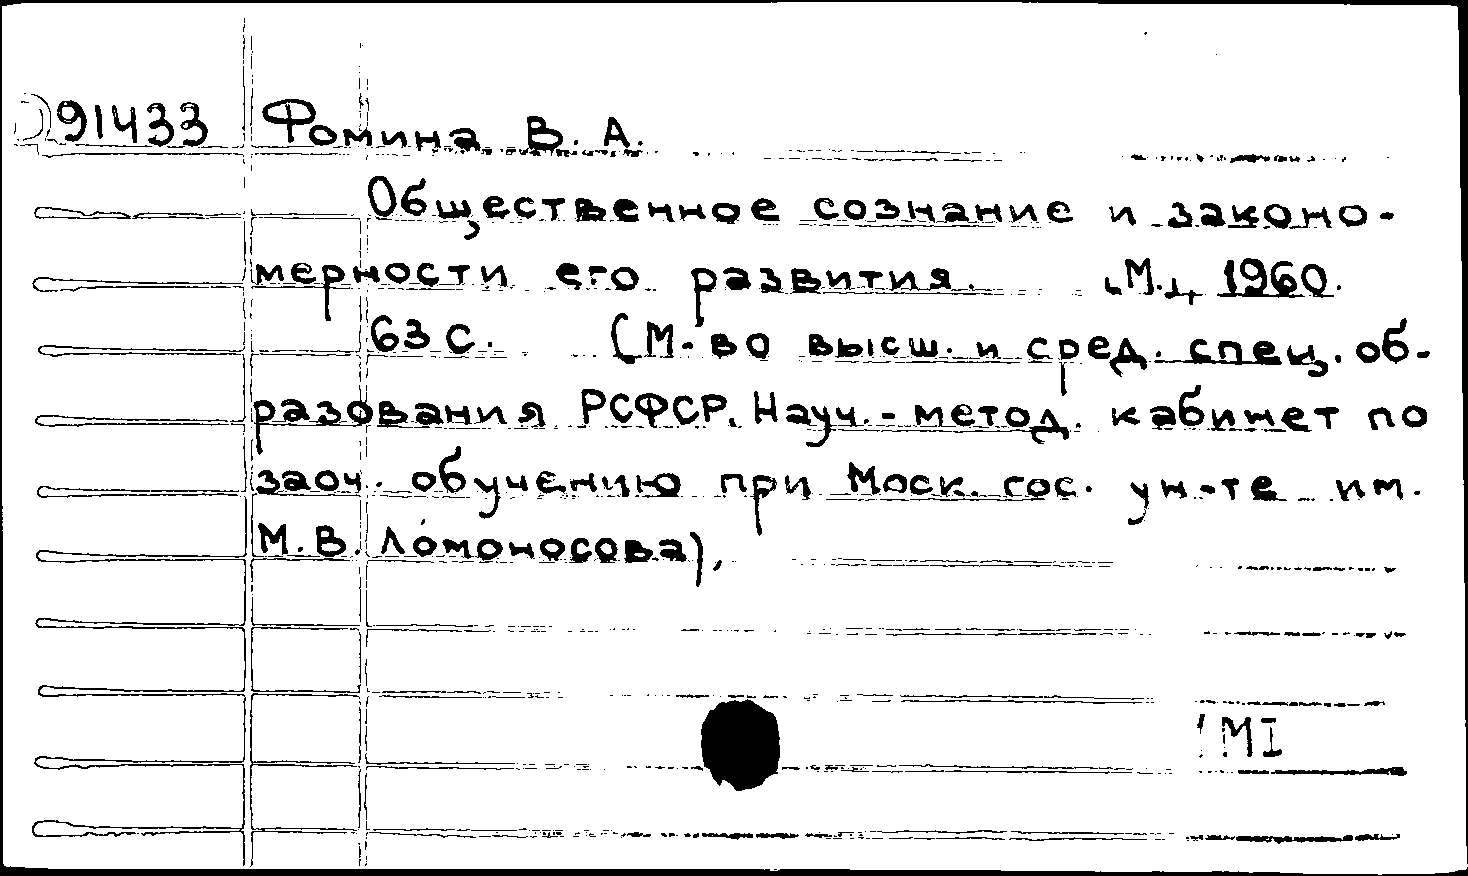 91433 Фомина В. А.
Общественное сознание и законо-
мерности его развития. М., 1960.
63 с. (М-во высш. и сред. спец. об-
разования РСФСР. Науч.-метод. кабинет по
заоч. обучению при Моск. гос. ун-те им.
М.В. Ломоносова),
MI